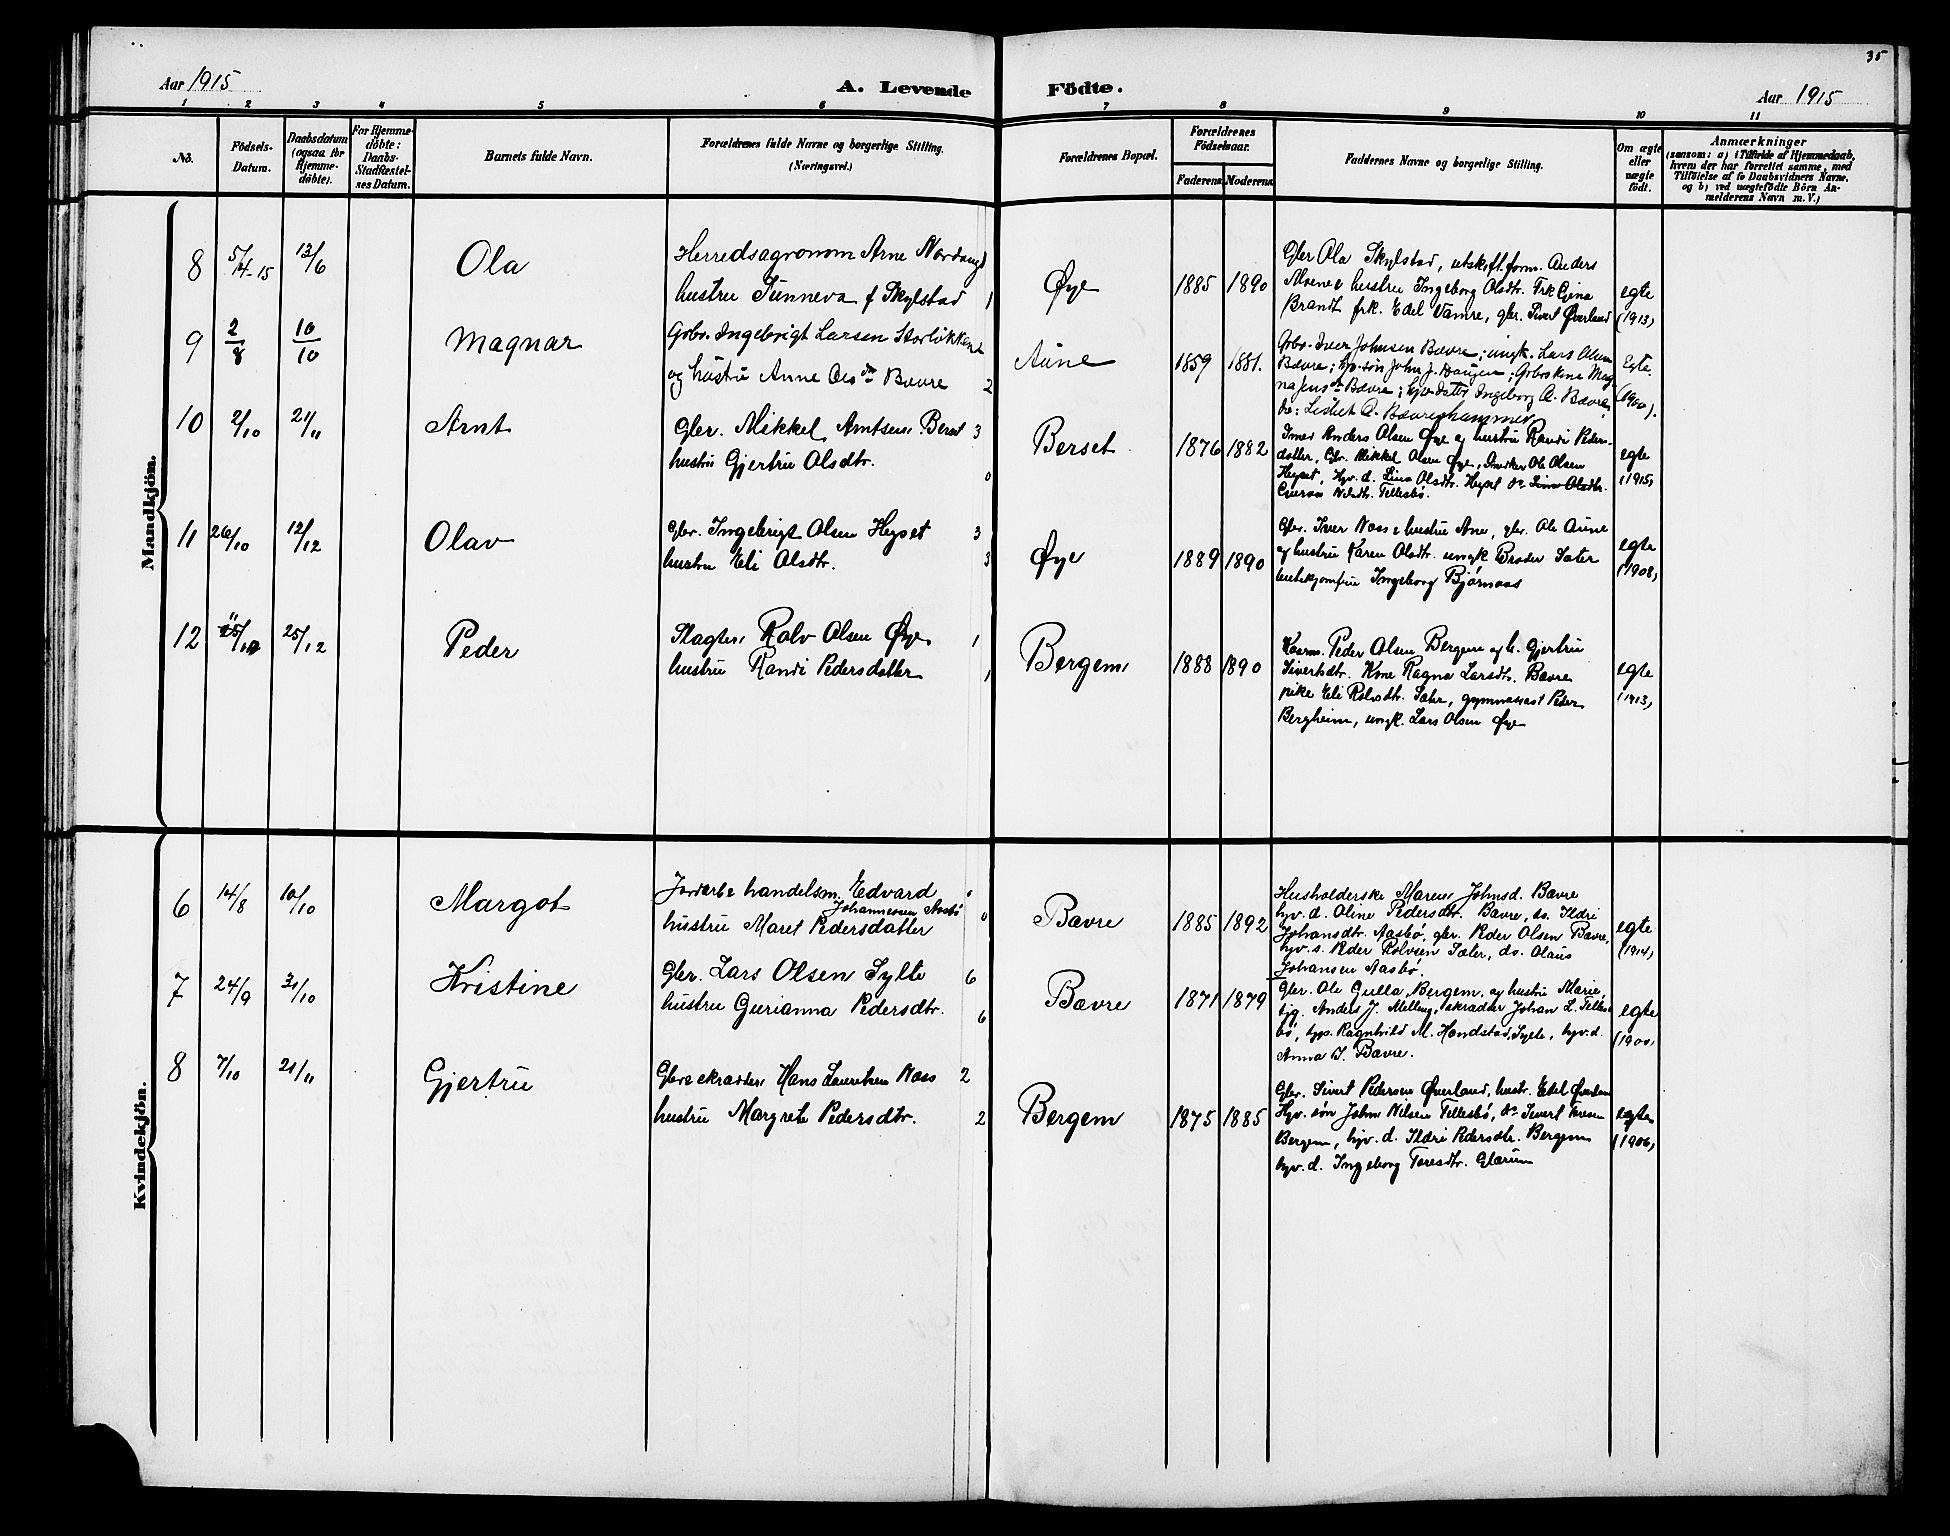 35
Aar 1915
A. Levende Födte.
Aar 1915
1 2 3 4 5 6 7 8 9 10 11
No.
Födsels-Datum.
Daabsdatum (ogsaa for Hjemmedöbte).
For Hjemmedöbte: Daabs-Stadfæstelses Datum.
Barnets fulde Navn.
Forældrenes fulde Navne og borgerlige Stilling.
(Næringsvei.)
Forældrenes Bopæl.
Forældrenes Födselsaar.
Faderens Moderens
Faddernes Navne og borgerlige Stilling.
Om ægte eller uægte født.
Anmærkninger
(saasom: a) i Tilfælde af Hjemmedaab,
hvem der har forrettet samme, med
Tilföielse af to Daabsvidners Navne.
og b) ved uægtefödte Börn An-
melderens Navn m. V.)
Mandkjön.
8 5/4-15 13/6 Ola
Herredsagronom Arne Nordang
hustru Sunneva f Skylstad 1
Øye 1885 1890
Gbr Ola Skylstad, utskift.form. Anders
Moen & hustru Ingeborg Olsdtr. Frk Gina
Brandt frk. Edel Vamre, gbr. Sivert Øverland
egte
(1913)
9 2/8 10/10 Magnar
Grbr. Ingebrigt Larsen Storløkken
og hustru Anne Olsdtr Bævre 2
Aune 1859 1881.
Grbr. Iver Johnsen Bævre; ungk. Lars Olsen
Bævre; hjv. søn John J. Haugen; Grbrskone Mag-
na Jensdtr Bævre; hjv. datter Ingeborg A. Bævre
do: Lisbet O. Bævrehammer
Egte.
(1900).
10 2/10 21/11 Arnt
Gbr. Mikkel Arntsen Berset 3
hustru Gjertru Olsdtr. 0
Berset 1876 1882
Anders Olsen Øye og hustru Randi Peders-
datter, Gbr. Mikkel Olsen Øye, Ole Olsen
Heyset, Hjv. d. Lina Olsdtr. Heyset
Nilsdtr. Tellesbø.
egte
(1915)
11 26/10 12/12 Olav
Gbr. Ingebrigt Olsen Heyset 3
hustru Eli Olsdtr. 3
Øye 1889 1890
Gbr. Iver Nass & hustru Ane, gbr. Ole Aune
og hustru Karen Olsdtr. ungk Broder Sæter
butikjomfru Ingeborg Bjørnaas
egte
(1908)
12 11 25/12 Peder
Slagter Rolv Olsen Øye 1
hustru Randi Pedersdatter 1
Bergem 1888 1890
Kaarm. Peder Olsen Bergem og h. Gjertru
Sivertsdtr. Kone Ragna Larsdtr. Bævre
pike Eli Rolvsdtr. Sæter, gymnasiast Peder
Bergheim, ungk. Lars Olsen Øye
egte
(1913)
Kvindekjön.
6 14/8 10/10 Margot
Jordarb & handelsm. Edvard
Johannessen Aasbø
hustru Maret Pedersdatter 0
Bævre 1885 1892
Husholderske Maren Johnsd. Bævre
hjv. d. Oline Pedersdtr. Bævre, do. Ildri
Johansdtr. Aasbø, gbr. Peder Olsen Bævre,
hjv. s. Peder Rolvsen Sæter, do. Olaus
Johansen Aasbø.
egte
(1914)
7 24/9 31/10 Kristine
Gbr. Lars Olsen Sylte 6
hustru Gurianna Pedersdtr. 6
Bævre 1871 1879
Gbr. Ole Gulla, Bergem og hustru Marie,
tjg. Anders J. Melling, skrædder Johan L. Telles-
bø, tjp. Ragnhild M. Handstad, Sylte, hjv.d.
Anna I. Bævre.
egte
(1900)
8 7/10 21/11 Gjertru
Gbr & skrædder Hans Lauritsen Nass 2
hustru Margrete Pedersdtr. 2
Bergem 1875 1885
Gbr. Sivert Pedersen Øverland, hustr. Edel Øverland
Hjv. søn John Nilsen Tellesbø, do Sivert Toresen
Bergem, hjv. d. Ildri Pedersdtr. Bergem
hjv. d. Ingeborg Toresdtr. Glærum
egte
(1906)